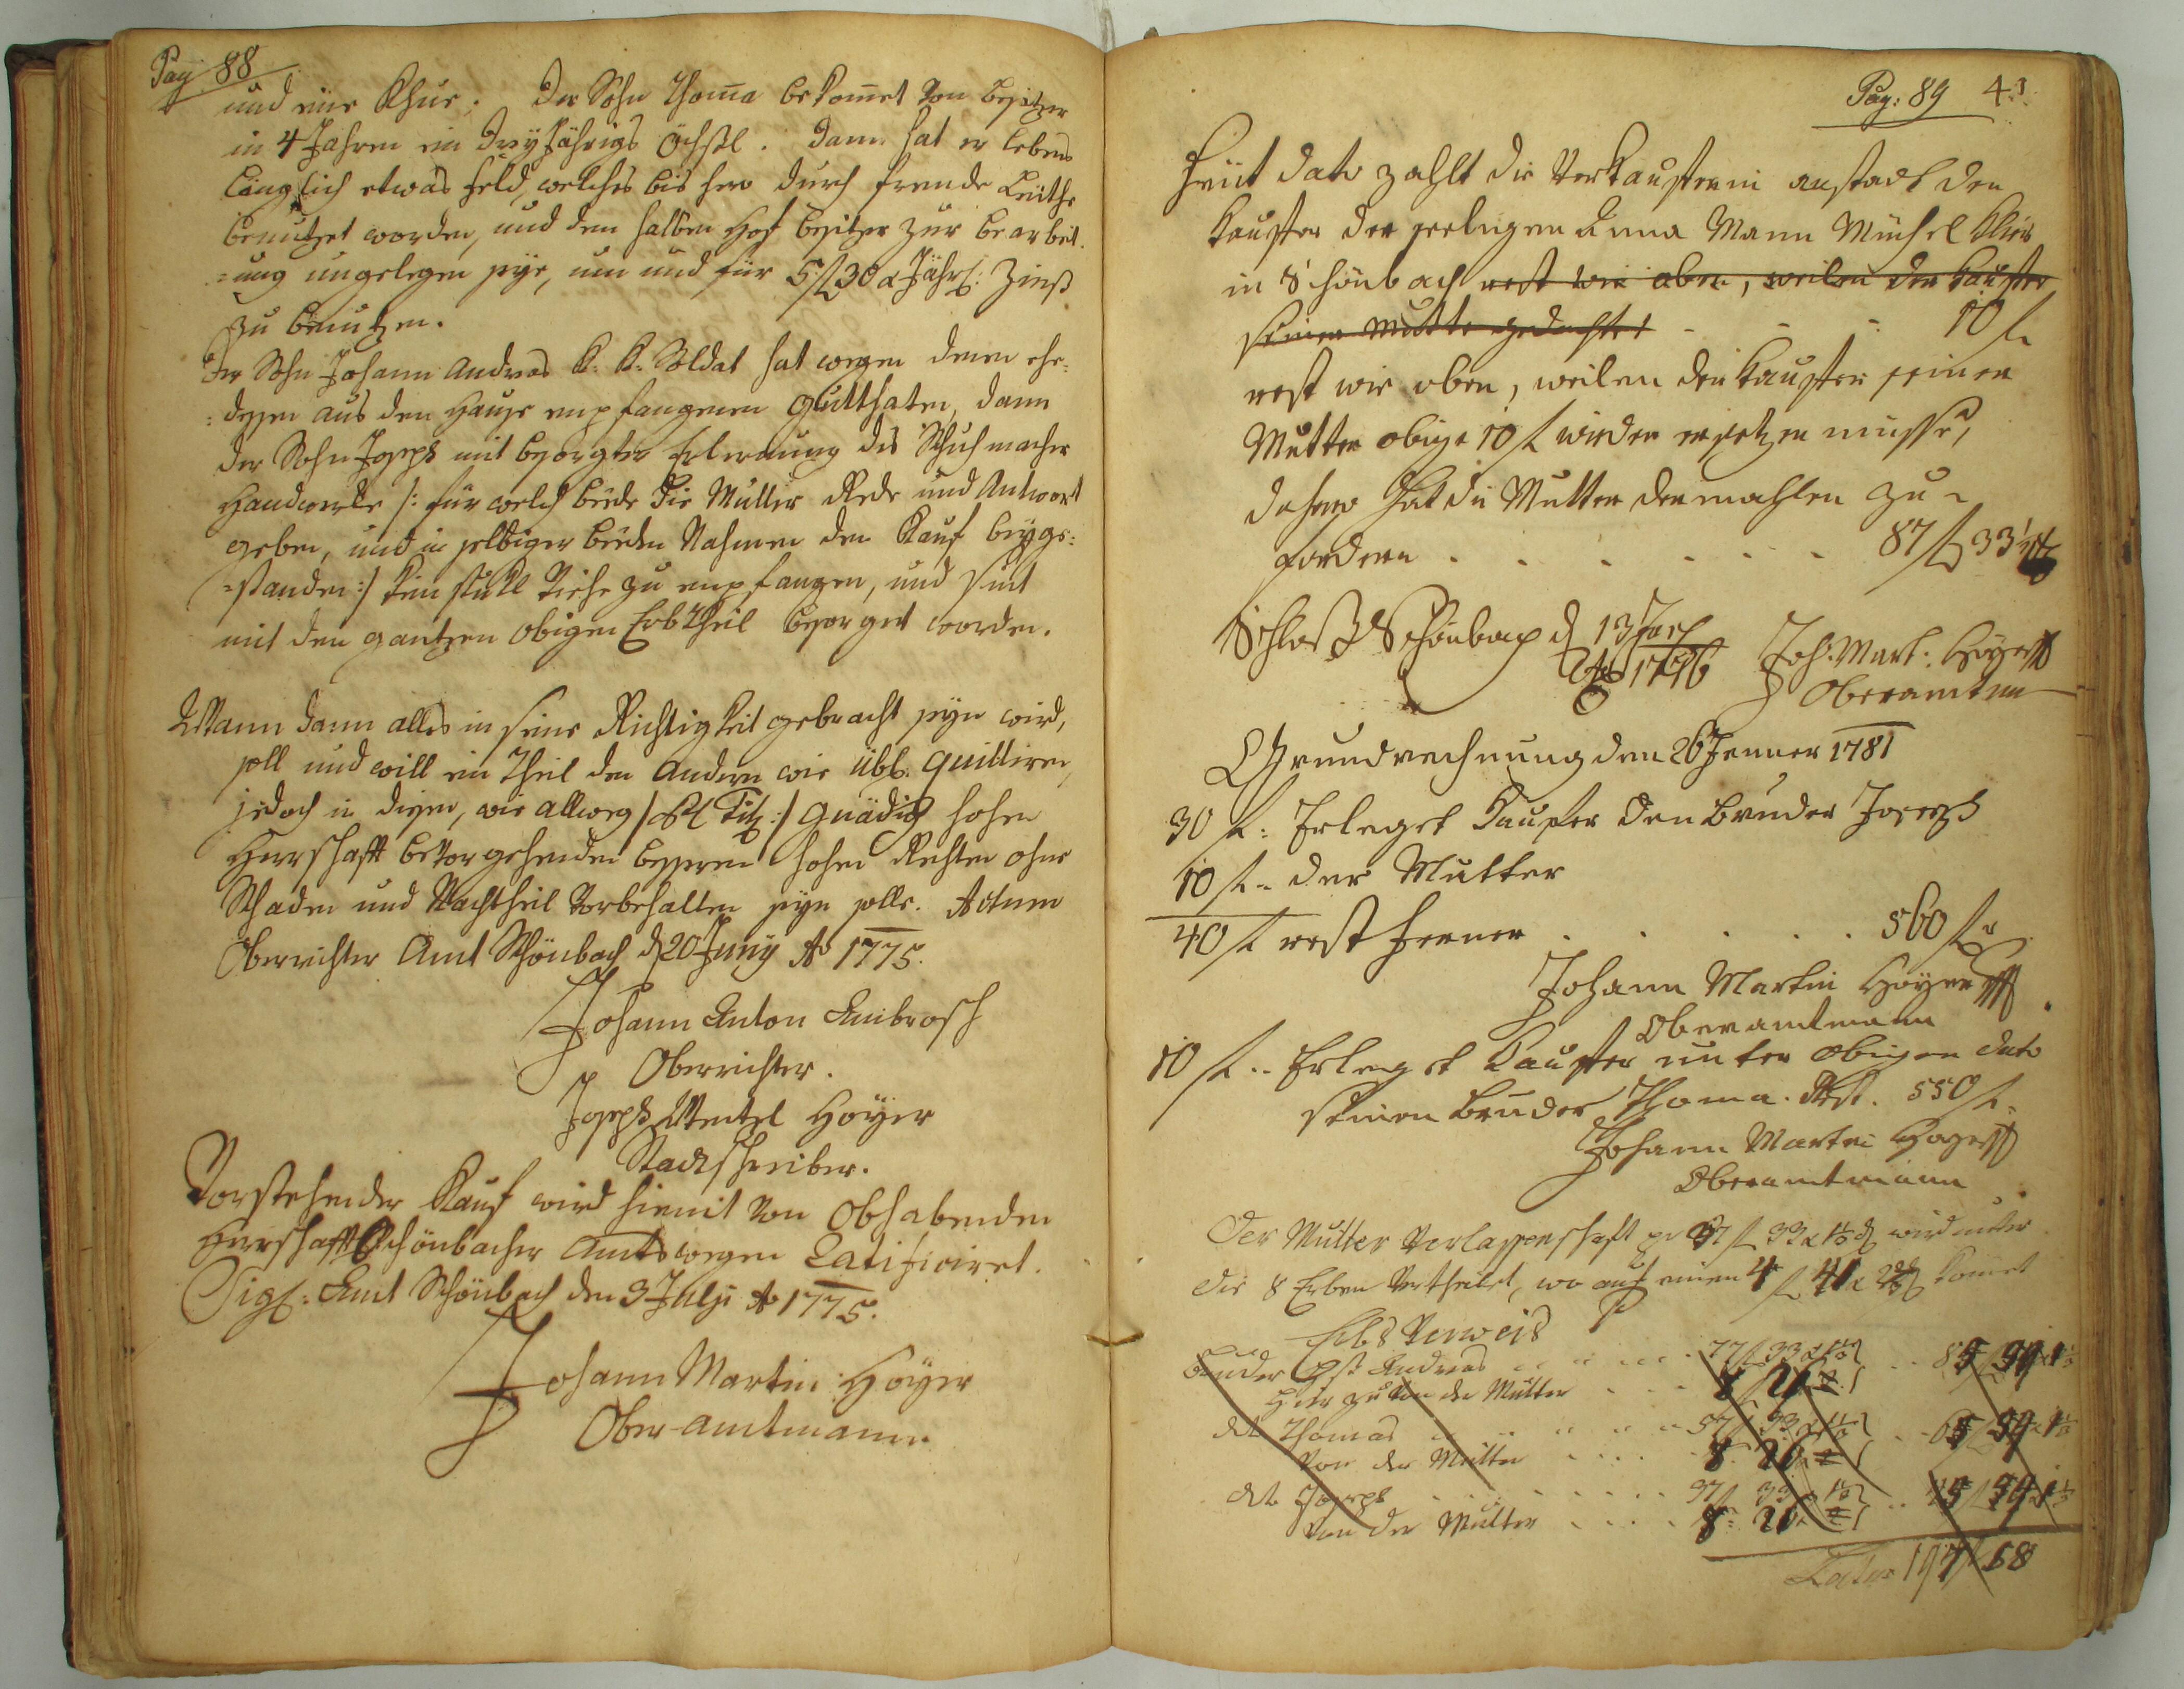 Pag: 88
und eine Khue. Der Sohn Thoma bekomet von besitzer
in 4 Jahren ein dreyjähriges Öchsl. Dann hat er lebens
länglich etwas Feld, welches bis hero durch fremde Leithe
benutzet worden, und dem halben Hof besitzer zur bearbeit:
:ung ungelegen seye, um und für 5 f 30 x Jährl: Zinß
zu benutzen.
Der Sohn Johann Andreas K: K: Soldat hat wegen denen ehe:
:dessen aus dem Hause empfangenen gutthaten, dann
der Sohn Joseph mit besorgter Erlernung des Schuhmacher
Handwerks /: für welch beede die Mutter Rede und Antwort
geben, und in selbiger beeden Nahmen den Kauf beyge:
:standen :/ kein stukl Viehe zu empfangen, und seint
mit den gantzen obigen Erbtheil besorget worden.
Wann dann alles in seine Richtigkeit gebracht seyn wird,
soll und will ein Theil den Andern wie übl. quittiren,
jedoch in diesen, wie allweg /: Tit :/ gnädig hohen
Herrschafft bevorgehenden besseren hohen Rechten ohne
Schaden und Nachtheil vorbehalten seyn solle. Actum
Oberrichter Amt Schönbach d 20 Juny Ao 1775.
Johann Anton Ambrosch
Oberrichter.
Joseph Wentzel Hoÿer
Stadtschreiber.
Vorstehender Kauf wird hiemit von Obhabenden
Herrschafft Schönbacher Amts wegen Ratificiret.
Sigl: Amt Schönbach den 3 Julji Ao 1775.
Johann Martin Hoÿer
Ober-amtmann
Pag: 89 43
Heüt dato zahlt die Verkaufferin anstadt den
Kauffer der seeligen Anna Mann Michel
in Schönbach rest wie oben, weilen der Kauffer
seiner Mutter - - - 10 f
rest wie oben, weilen der Kauffer seiner
Mutter obige 10 f wieder ersetzen müsse,
dahero hat die Mutter dermahlen zu
fordern . . . . . . 87 f 33
Schloß Schönbach d 13
Ao 1776 Joh: Mart: Hoÿer
Oberamtm
Grundrechnung den 26 Jenner 1781
30 f: Erleget Kaufer den Bruder Joseph
10 f.. der Mutter
40 f rest ferner . . . . . 560 f
Johann Martin Hoÿer
Oberamtmann
10 f.. Erleget Kauffer unter obigen dato
seinen Bruder Thoma. Rest. 550 f
Johann Martin Hoyer
Oberamtmann
Der Mutter Verlassenschaft pr 37 f 33 x 1½ d wird unter
die 8 Erben vertheilet, wo auf einen 4 f 41 x komet
Erbs Verweis
Bruder Andreas . . . 77 f 33 x 1½ . . 85 f 59 1½
Hier zu von der Mutter . . . 8 f 26 x 2
dto Thomas . . . 57 f 33 x 1½ . . 65 f 59 x 1½
Von der Mutter . . . . 8. 26. 2
dto Joseph . . . . . 37 f 33 x 1½ . . 45 f 59 x 1½
Von der Mutter . . . . 8. 26. 2
Latus 197 f 58